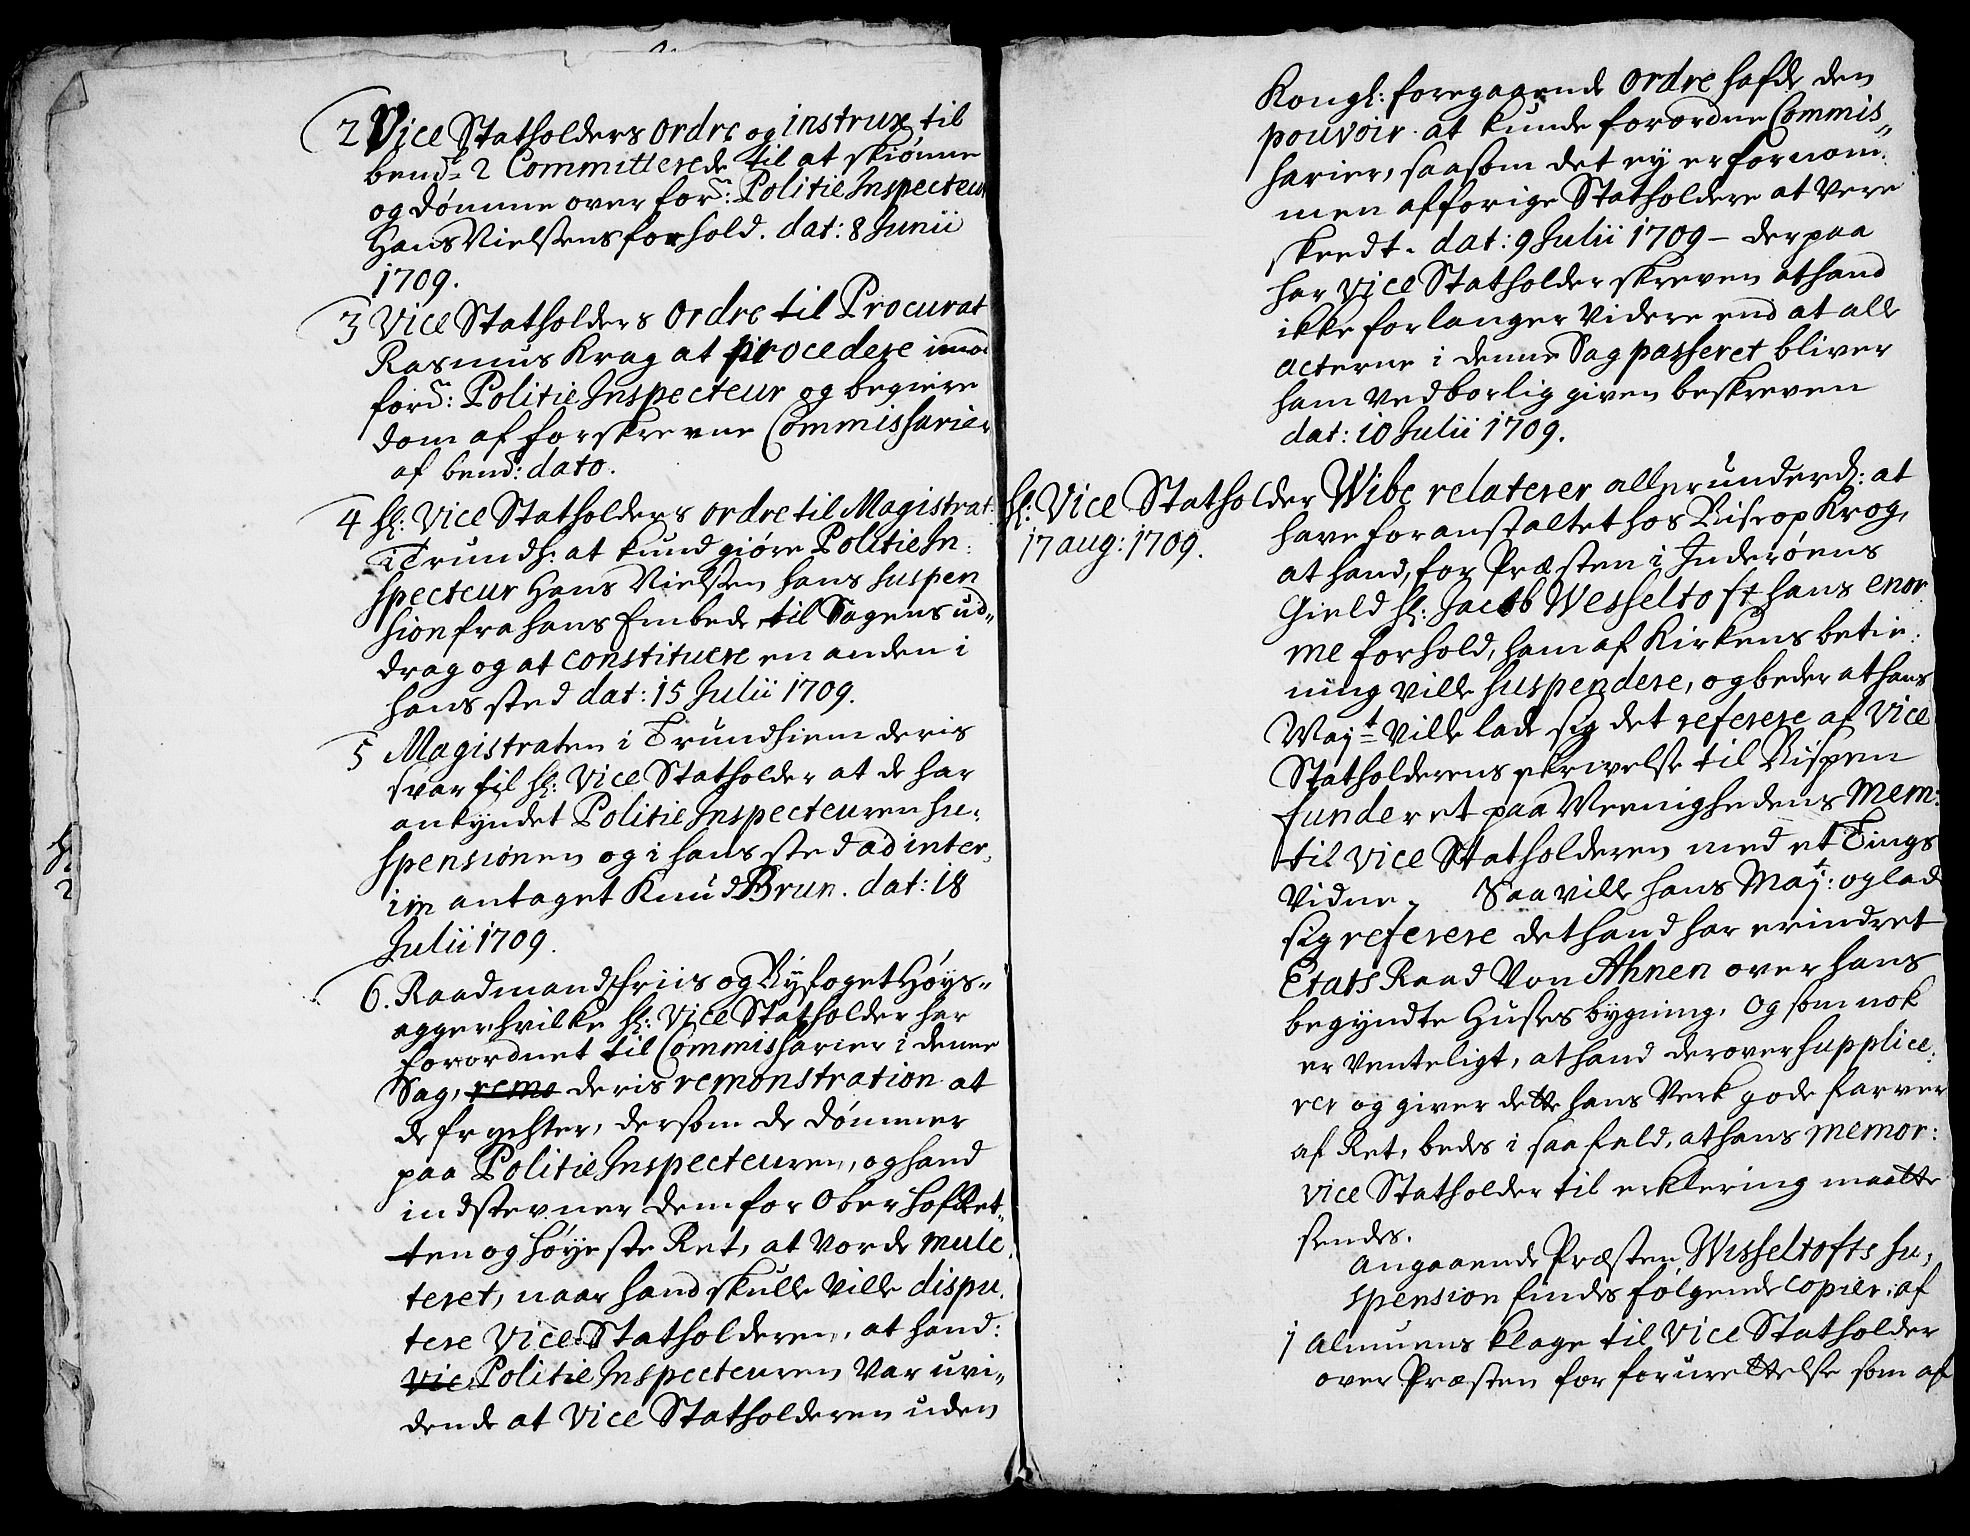 2 Vice Statholders ordre og instrux til
bemd: 2 Committerede til at skiønne
og dømme over ford: Politie Inspecteur
Hans Nielsens forhold. dat: 8 Junii
1709.
3 Vice Statholders ordre til Procurat
Rasmus Krag at procedere imod
ford: Politie Inspecteur og begiere
dom af forskrevne Commissarier
af bemd: dato.
4 Hl: Vice Statholders ordre til Magistrat:
i Trundh: at kundgiøre Politie In:
specteur Hans Nielsen hans suspen
sion fra hans Embede til Sagens ud„
drag og at constituere en anden i
hans sted dat: 15 Julii 1709.
5 Magistraten i Trundhiem deris
svar til hl: Vice Statholder at de har
ankyndet Politie Inspecteuren su„
spensionen og i hans sted ad inter„
im antaget Knud Brun. dat: 18
Julii 1709.
6. Raadmand Friis og Byfoget Høys„
agger, hvilke hl: Vice Statholder har
forordnet til Commissarier i denne
Sag, remo deris remonstration at
de frychter, dersom de dømmer
paa Politie Inspecteuren, og hand
indstevner dem for Ober Hof Ret„
ten og Høyeste Ret, at vorde mulc„
teret, naar hand skulle ville dispu„
tere Vice Statholderen, at hand:
Vic Politie Inspecteuren var uvi„
dende at Vice Statholderen uden
Kongl: foregaaende ordre hafde den
pouvoir at kunde forordne Commis„
sarier, saasom det ey er fornom:
men af forige Statholdere at vere
skeedt. dat: 9 Julii 1709 – derpaa
har Vice Statholder skreven at hand
ikke forlanger videre end at alle
acterne i denne Sag passeret bliver
ham vedborlig given beskreven
dat: 10 Julii 1709.
Hl: Vice Statholder Wibe relaterer allerunderd: at
17 aug: 1709.
have foranstaltet hos Biscop Krog,
at hand, for Præsten i Inderøens
Gield hl: Jacob Wesseltoft hans enor
me forhold, ham af Kirkens betie:
ning ville suspendere, og beder at hans
Majt ville lade sig det referere af Vice
Statholderens skrivelse til Bispen
funderet paa Meenighedens Mem:
til Vice Statholderen med et Tings
Vidne. Saa ville hans Majt: og lade
sig referere det hand har erindret
Etats Raad Von Ahnen over hans
begyndte Huses bygning, og som nok
er venteligt, at hand derover supplice:
rer og giver dette hans Verk gode farver
af Ret, bedes i saa fald, at hans memor:
Vice Statholder til erklering maatte
sendes.
Angaaende Præsten Wisseltofts su„
spension findes følgende copier: af
1 Almuens klage til Vice Statholder
over Præsten for forurettelse som af